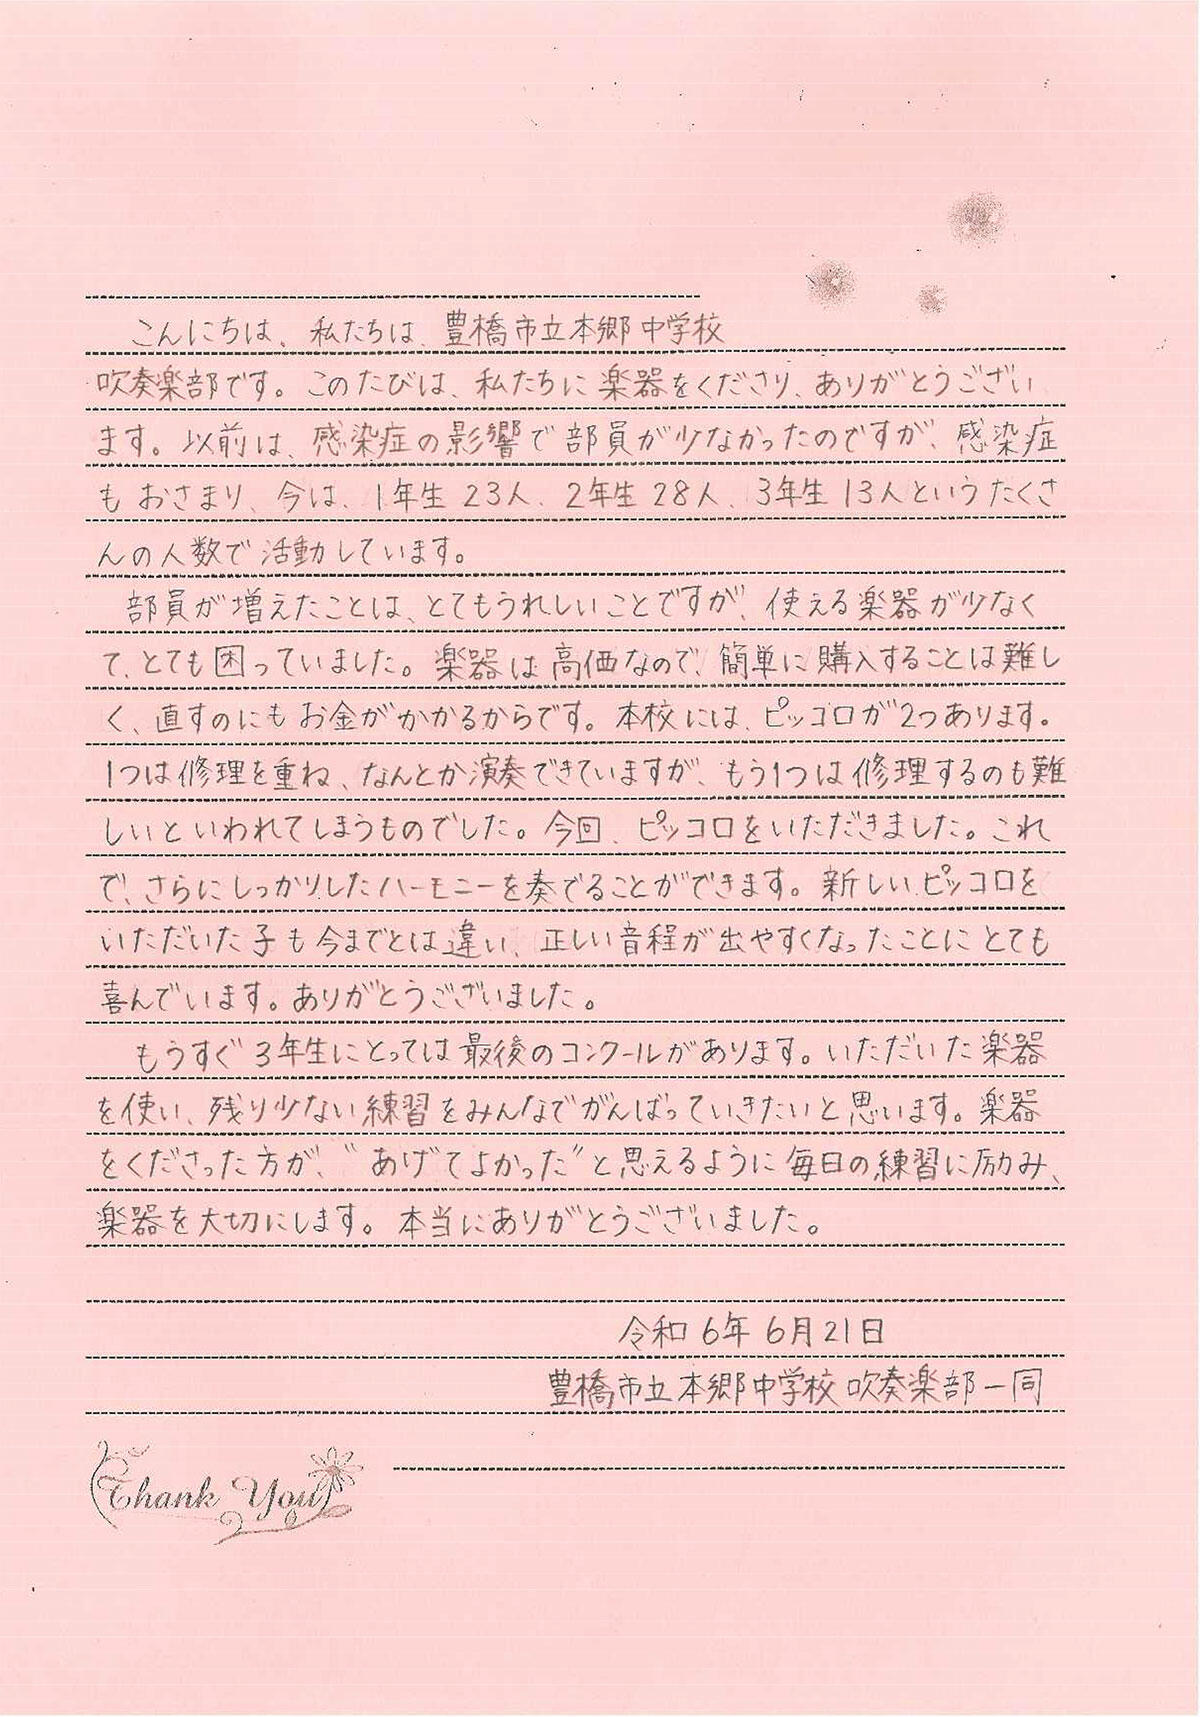 こんにちは、私たちは、豊橋市立本郷中学校
吹奏楽部です。このたびは、私たちに楽器をくださり、ありがとうござい
ます。以前は、感染症の影響で部員が少なかったのですが、感染症
もおさまり、今は、1年生23人、2年生28人、3年生13人というたくさ
んの人数で活動しています。
部員が増えたことは、とてもうれしいことですが、使える楽器が少なく
て、とても困っていました。楽器は高価なので、簡単に購入することは難し
く、直すのにもお金がかかるからです。本校には、ピッコロが2つあります。
1つは修理を重ね、なんとか演奏できていますが、もう1つは修理するのも難
しいといわれてしまうものでした。今回、ピッコロをいただきました。これ
で、さらにしっかりしたハーモニーを奏でることができます。新しいピッコロを
いただいた子も今までとは違い、正しい音程が出やすくなったことにとても
喜んでいます。ありがとうございました。
もうすぐ3年生にとっては最後のコンクールがあります。いただいた楽器
を使い、残り少ない練習をみんなでがんばっていきたいと思います。楽器
をくださった方が、"あげてよかった"と思えるように毎日の練習に励み、
楽器を大切にします。本当にありがとうございました。
令和6年6月21日
豊橋市立本郷中学校吹奏楽部一同
Thank You